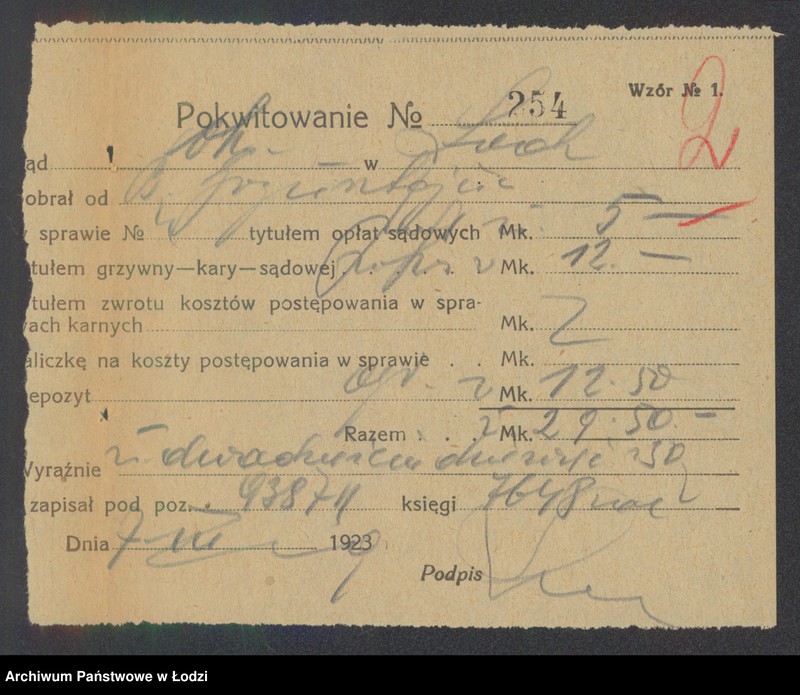 Wzór № 1.
2
Pokwitowanie № 254
ąd Ok. w Łodzi
obrał od
sprawie № tytułem opłat sądowych Mk. 5 —
tułem grzywny—kary—sądowej . . . . . Mk. 12 —
tułem zwrotu kosztów postępowania w spra-
ach karnych Mk.
aliczkę na koszty postępowania w sprawie . . Mk.
epozyt Mk. 12.50
Razem . . . Mk. 29.50 —
Wyraźnie zł dwadzieścia dziewięć 50
zapisał pod poz. . 9387/II księgi
Dnia 7 1923
Podpis
Archiwum Państwowe w Łodzi